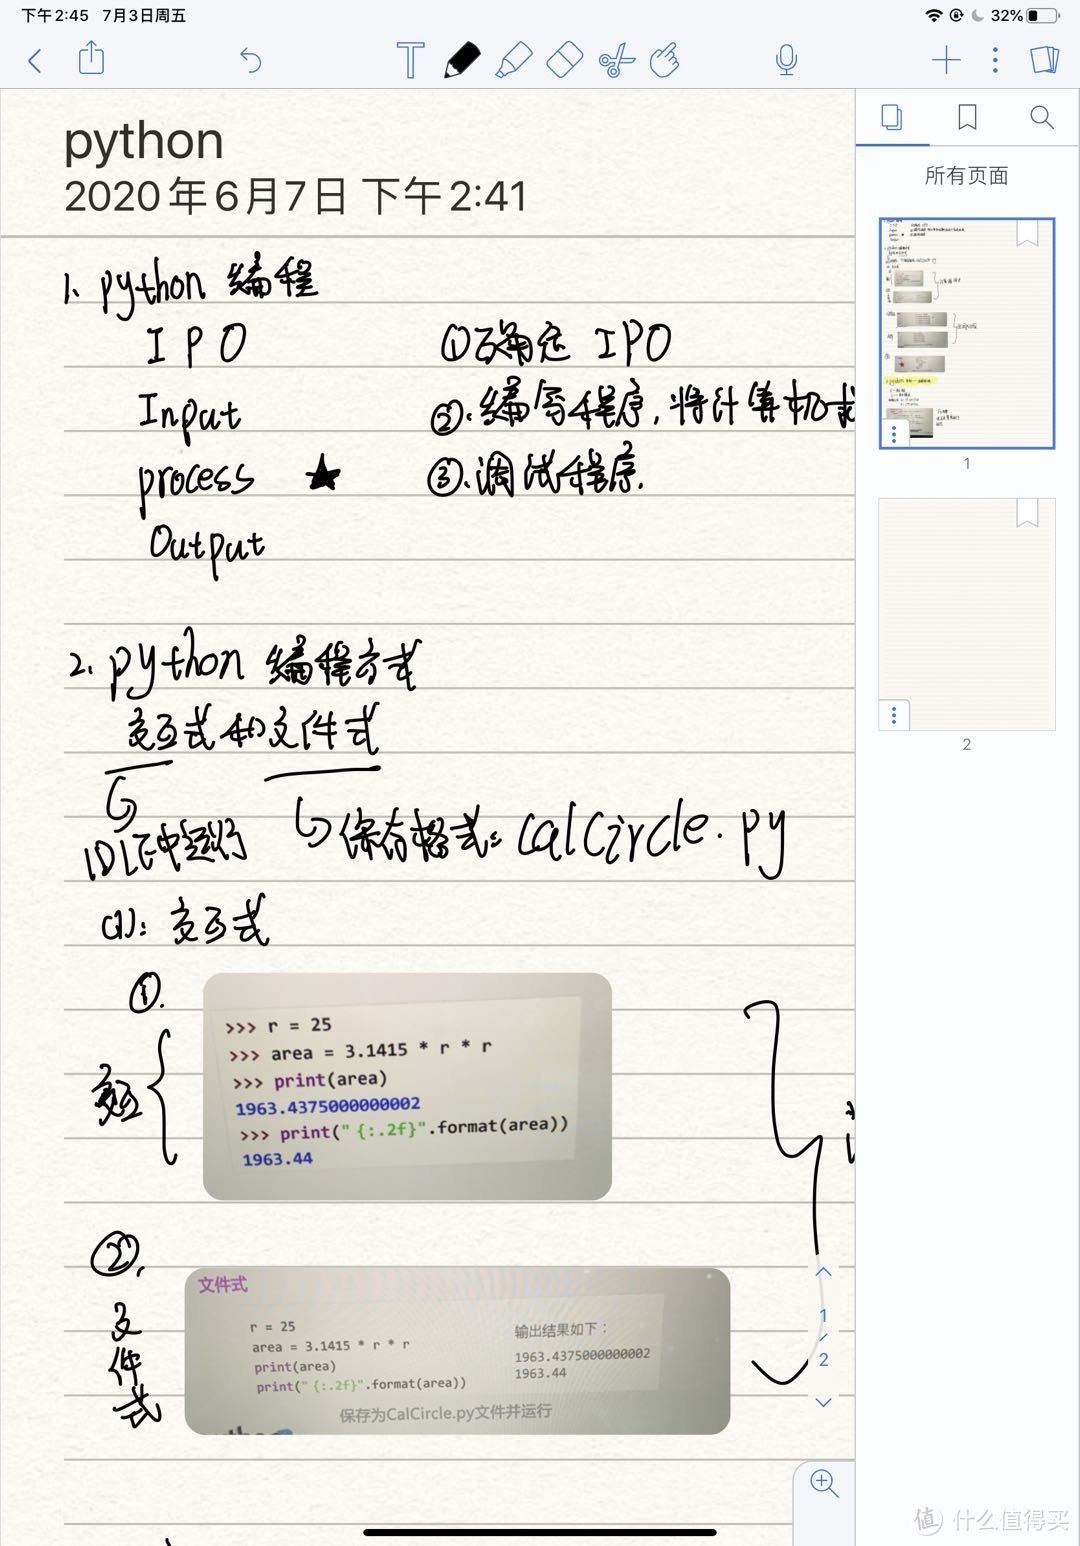 下午2:45 7月3日周五
32%
python
2020年6月7日 下午2:41
所有页面
1. python 编程
I P O ①确定 IPO
Input ②.编写程序,将计算机求
process ★ ③.调试程序.
Output
1
2. python 编程方式
交互式和文件式
2
IDLE中运行 保存格式: CalCircle.py
(1): 交互式
①.
交互
>>> r = 25
>>> area = 3.1415 * r * r
>>> print(area)
1963.4375000000002
>>> print("{:.2f}".format(area))
1963.44
②.
文件式
文件式
r = 25
area = 3.1415 * r * r
print(area)
print("{:.2f}".format(area))
输出结果如下:
1963.4375000000002
1963.44
保存为CalCircle.py文件并运行
1
/
2
值 什么值得买